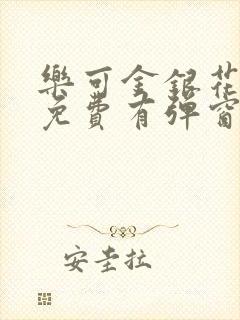 樂可金銀花
免費有彈窗
安圭拉